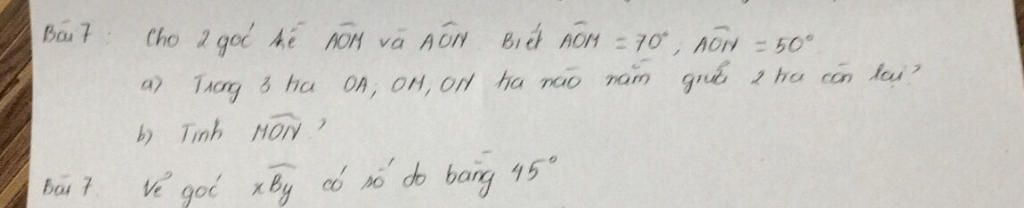 Bài 7: Cho 2 góc kề AOM và AON. Biết AOM = 70°, AON = 50°
a) Trong 3 tia OA, OM, ON tia nào nằm giữa 2 tia còn lại?
b) Tính MON?
Bài 7. Vẽ góc xBy có số đo bằng 45°